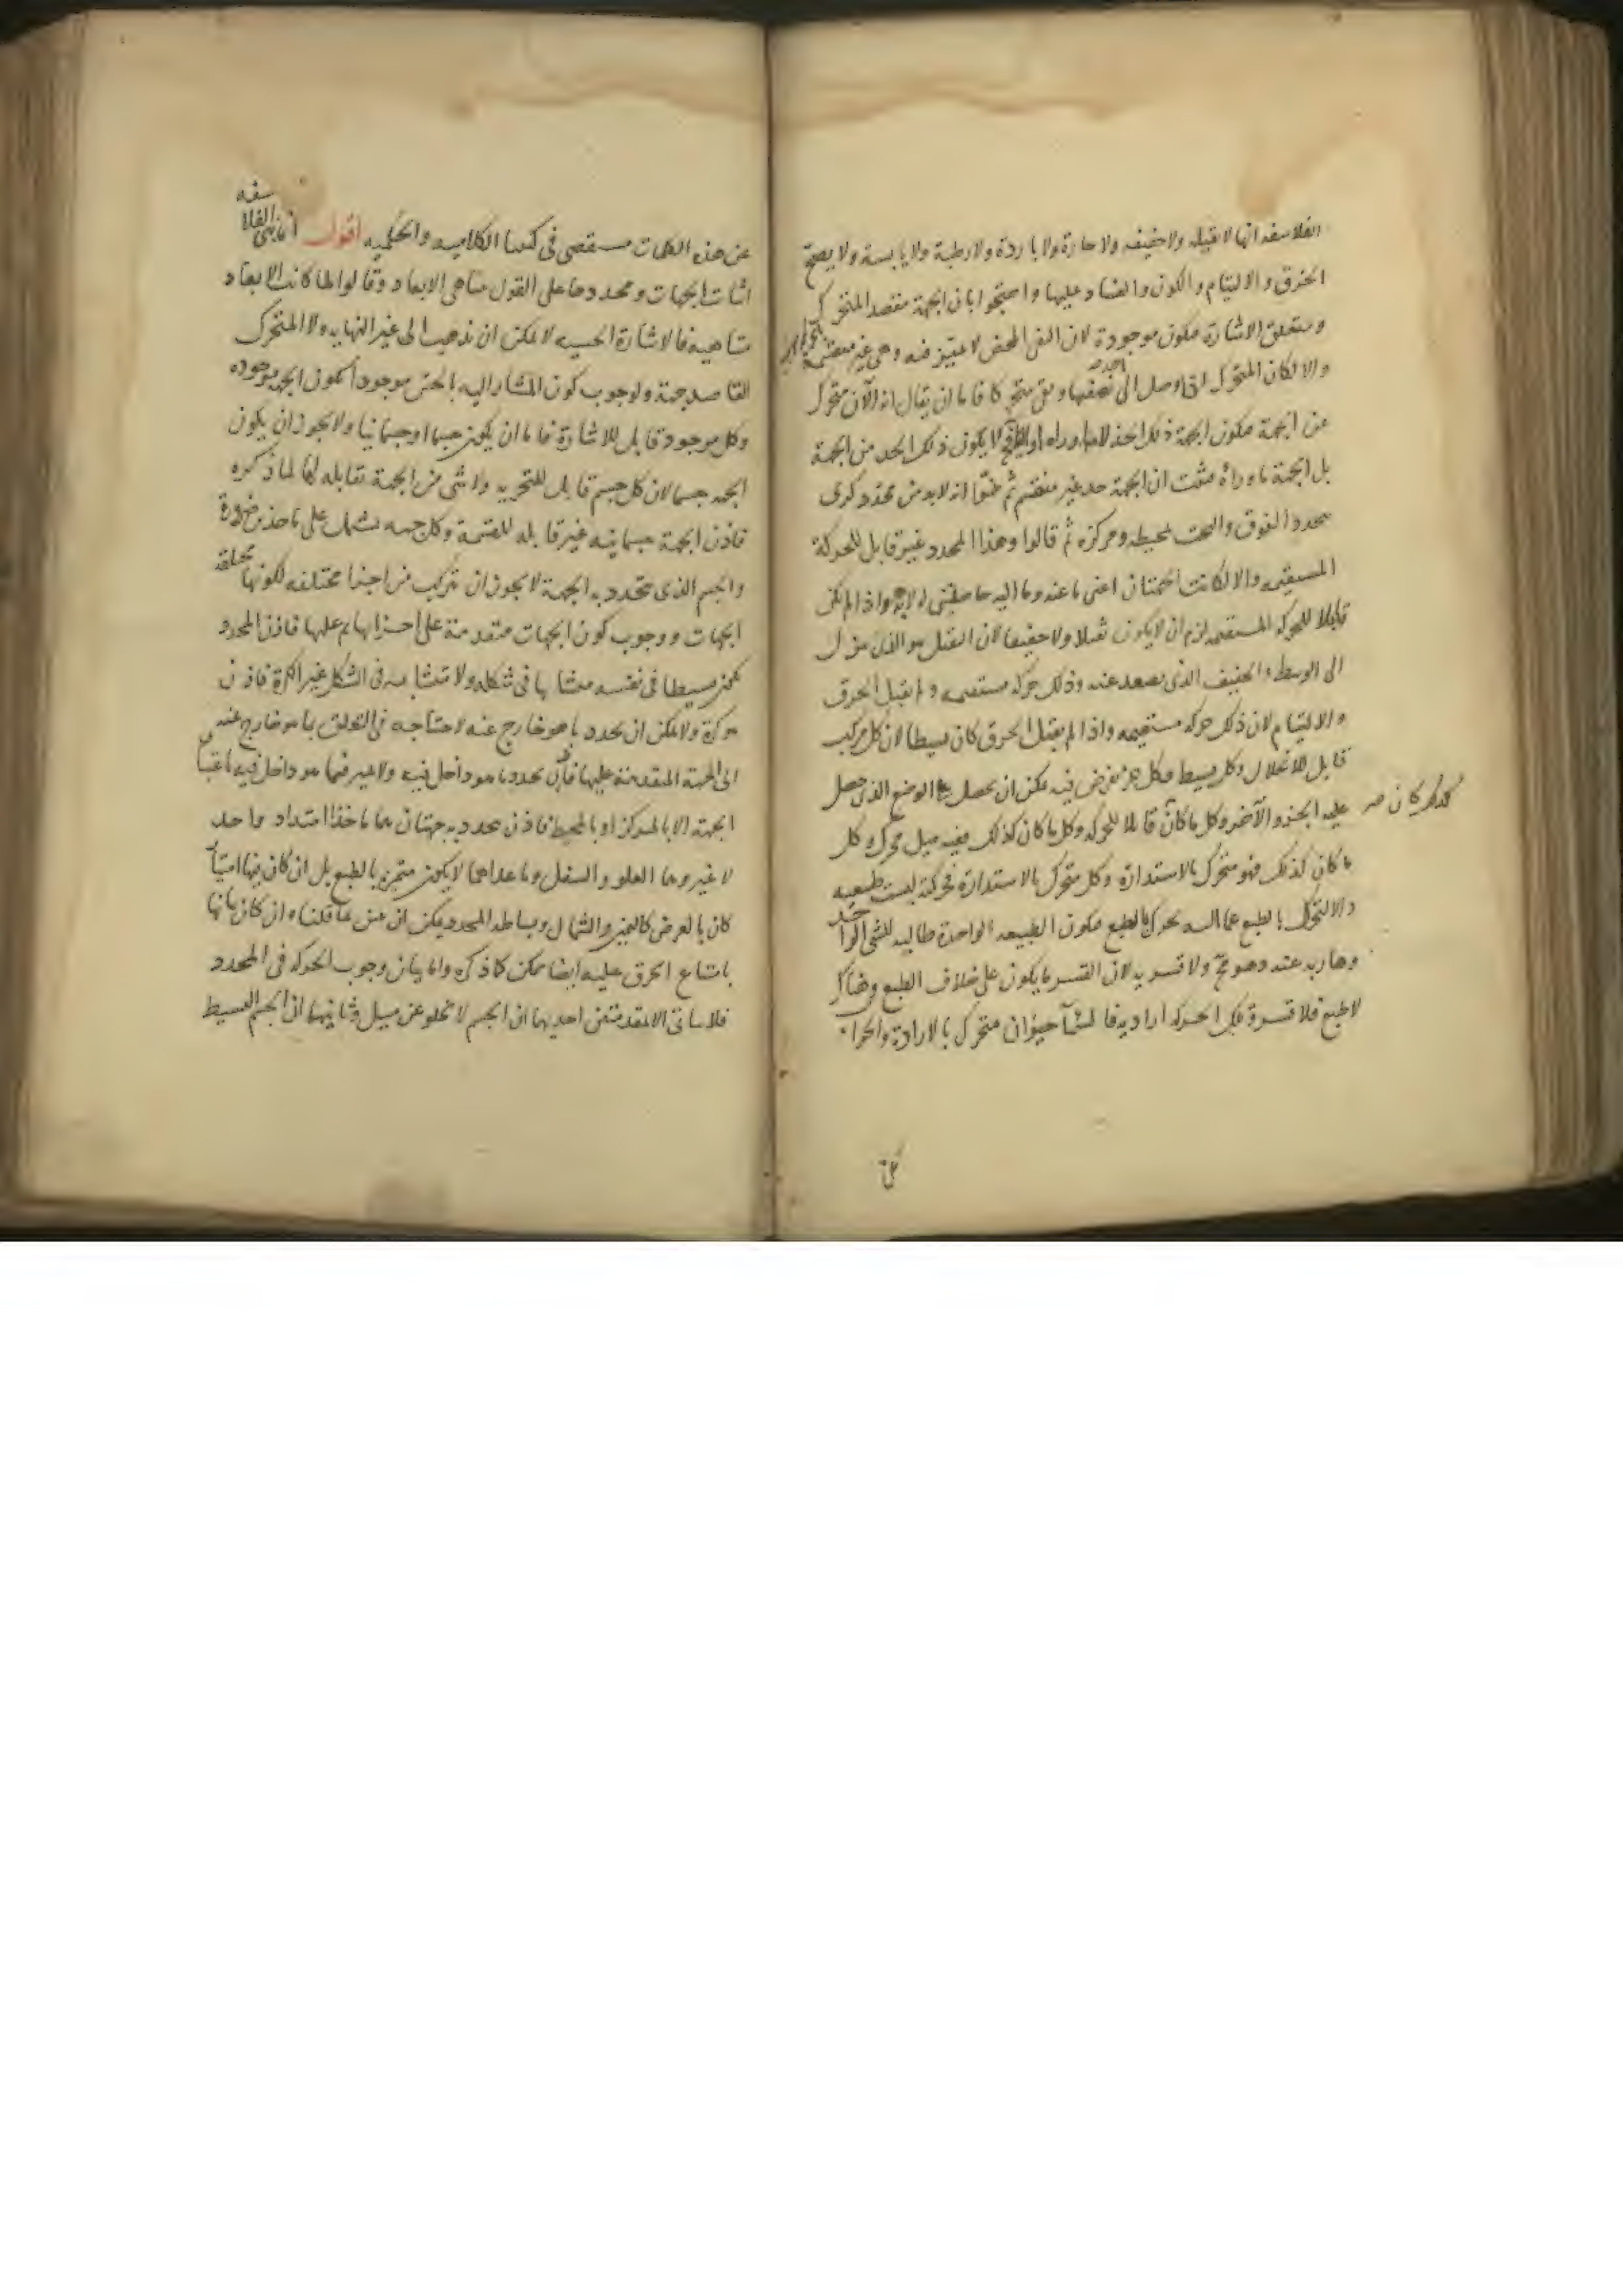 الفلاسفه انها لا ثقيله ولا خفيفه ولا حارة ولا باردة ولا رطبة ولا يابسة ولا يصح
الخرق والالتيام والكون والفساد عليها واحتجوا بان الجهة مقصد المتحرك
ومتعلق الاشارة فتكون موجودة لان النفى المحض لا تميز فيه وهى غير منقسمة
والا لكان المتحرك اذا وصل الى نصفها وبقى متحركا فاما ان يقال انه الآن متحرك
من الجهة فتكون الجهة ذلك الحد لا ما وراه او لا يكون ذلك الحد من الجهة
بل الجهة ما وراه فثبت ان الجهة حد غير منقسم ثم انه لابد من محدد كرى
يحدد الفوق والتحت بمحيطه ومركزه ثم قالوا وهذا المحدد غير قابل للحركة
المستقيمه والا لكانت الجهتان اعنى ما عنه وما اليه حاصلتين له لا به واذا لم يكن
قابلا للحركه المستقيمه لزم ان لا يكون ثقيلا ولا خفيفا لان الثقيل هو الذى ينزل
الى الوسط والخفيف الذى يصعد عنه وذلك حركه مستقيمه ولم يقبل الخرق
والالتيام لان ذلك حركه مستقيمه واذا لم يقبل الخرق كان بسيطا لان كل مركب
قابل للانحلال وكل بسيط فكل جزء يفرض فيه يمكن ان يحصل على الوضع الذى حصل
عليه الجزء الآخر وكل ما كان قابلا للحركه وكل ما كان كذلك ففيه ميل محرك وكل
كذلك كان صـ
ما كان كذلك فهو متحرك بالاستدارة وكل متحرك بالاستدارة فحركته ليست طبيعيه
والا لتحرك بالطبع عما اليه تحرك بالطبع فتكون الطبيعه الواحدة طالبه للشى الواحد
وهاربه عنه وهو مح ولا قسريه لان القسر ما يكون على خلاف الطبع وهناك
لا طبع فلا قسر فتلك الحركه اراديه فالسماء حيوان متحرك بالارادة والجواب
عن هذه الكلمات مستقصى فى كتبنا الكلاميه والحكميه اقول اما بنى الفلاسفه
اثبات الجهات ومحددها على القول بتناهى الابعاد وقالوا لما كانت الابعاد
متناهيه فالاشارة الحسيه لا يمكن ان تذهب الى غير النهايه ولا المتحرك
القاصد جهة ولوجوب كون المشار اليه بالحس موجودا تكون الجهة موجوده
وكل موجود قابل للاشارة فاما ان يكون جسما او جسمانيا ولا يجوز ان يكون
الجهه جسما لان كل جسم قابل للتجزيه ولا شى من الجهة بقابله لها لما ذكره
فاذن الجهة جسمانيه غير قابله للقسمة وكل جسم يشتمل على ما حد ضرورة
والجسم الذى تتحدد به الجهة لا يجوز ان يتركب من اجزا مختلفه لكونها مختلفه
الجهات ووجوب كون الجهات متقدمة على اجزايها عليها فاذن المحدد
يكون بسيطا فى نفسه متشابها فى شكله ولا متشابه فى الشكل غير الكرة فاذن
هو كرة ولا يمكن ان يحدد ما هو خارج عنه لاحتياجه فى التعلق بما هو خارج عنه
الى الجهة المتقدمة عليها فاذن يحدد ما هو داخل فيه ولا يتميز فيما هو داخل فيه باعتبار
الجهة الا بالمركز او بالمحيط فاذن يتحدد به جهتان هما ماخذا امتداد واحد
لا غير وهما العلو والسفل وما عداهما لا يكون متميزه بالطبع بل ان كان فيها امتياز
كان بالعرض كاليمين والشمال وبساطه المحدد يمكن ان تبين بما قلناه وان كان بيانها
بامتناع الخرق عليه ايضا ممكن كما ذكره واما بيان وجوب الحركه فى المحدد
فلا يتاتى الا بمقدمتين احديهما ان الجسم لا يخلو عن ميل وثانيتهما ان الجسم البسيط